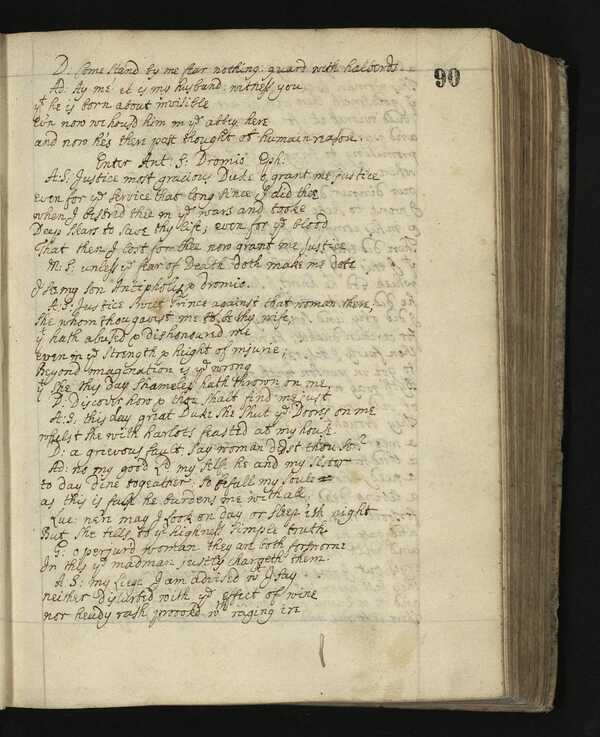 90
D: Come stand by me fear nothing: guard with halberds
Ad: Ay me it is my husband, witness you
yt he is born about invisible
Ev'n now we hous'd him in ye abby here
and now he's there past thought of humain reason.
Enter Ant S: Dromio Eph:
A:S: Justice most gracious Duke O grant me justice
even for ye service that long since I did thee
when I bestrid thee in ye wars and tooke
Deep skars to save thy life; even for ye blood
That then I lost for thee now grant me justice
M:S: unless ye fear of Death doth make me dote
I se my son Antipholus & dromio.
A:S: Justice Sweet Prince against that woman there,
she whom thou gavist me to be thy wife,
yt hath abused & dishonoured me
even in ye strength & hight of injurie,
Beyond imagination is ye wrong
yt she this day shameles hath thrown on me,
D: Discover how & thou shalt find me just
A:S: this day great Duke she shut ye Doors on me
whilst she with harlots feasted at my house
D: a grievous fault: say woman didst thou so?
Ad: no my good Ld my self, he and my sister
to day dine togeather: so befall my soul
as this is false he burdens me withall
Luc: ne'r may I look on day, or sleep ith night
But she tells to yr highness simple truth
G: o perjurd woman they are both forsworne
In this ye madman justly chargeth them.
A S: my Liege I am advised wt I say
neither disturbed with ye effect of wine
nor heady rash provoked wth raging ire